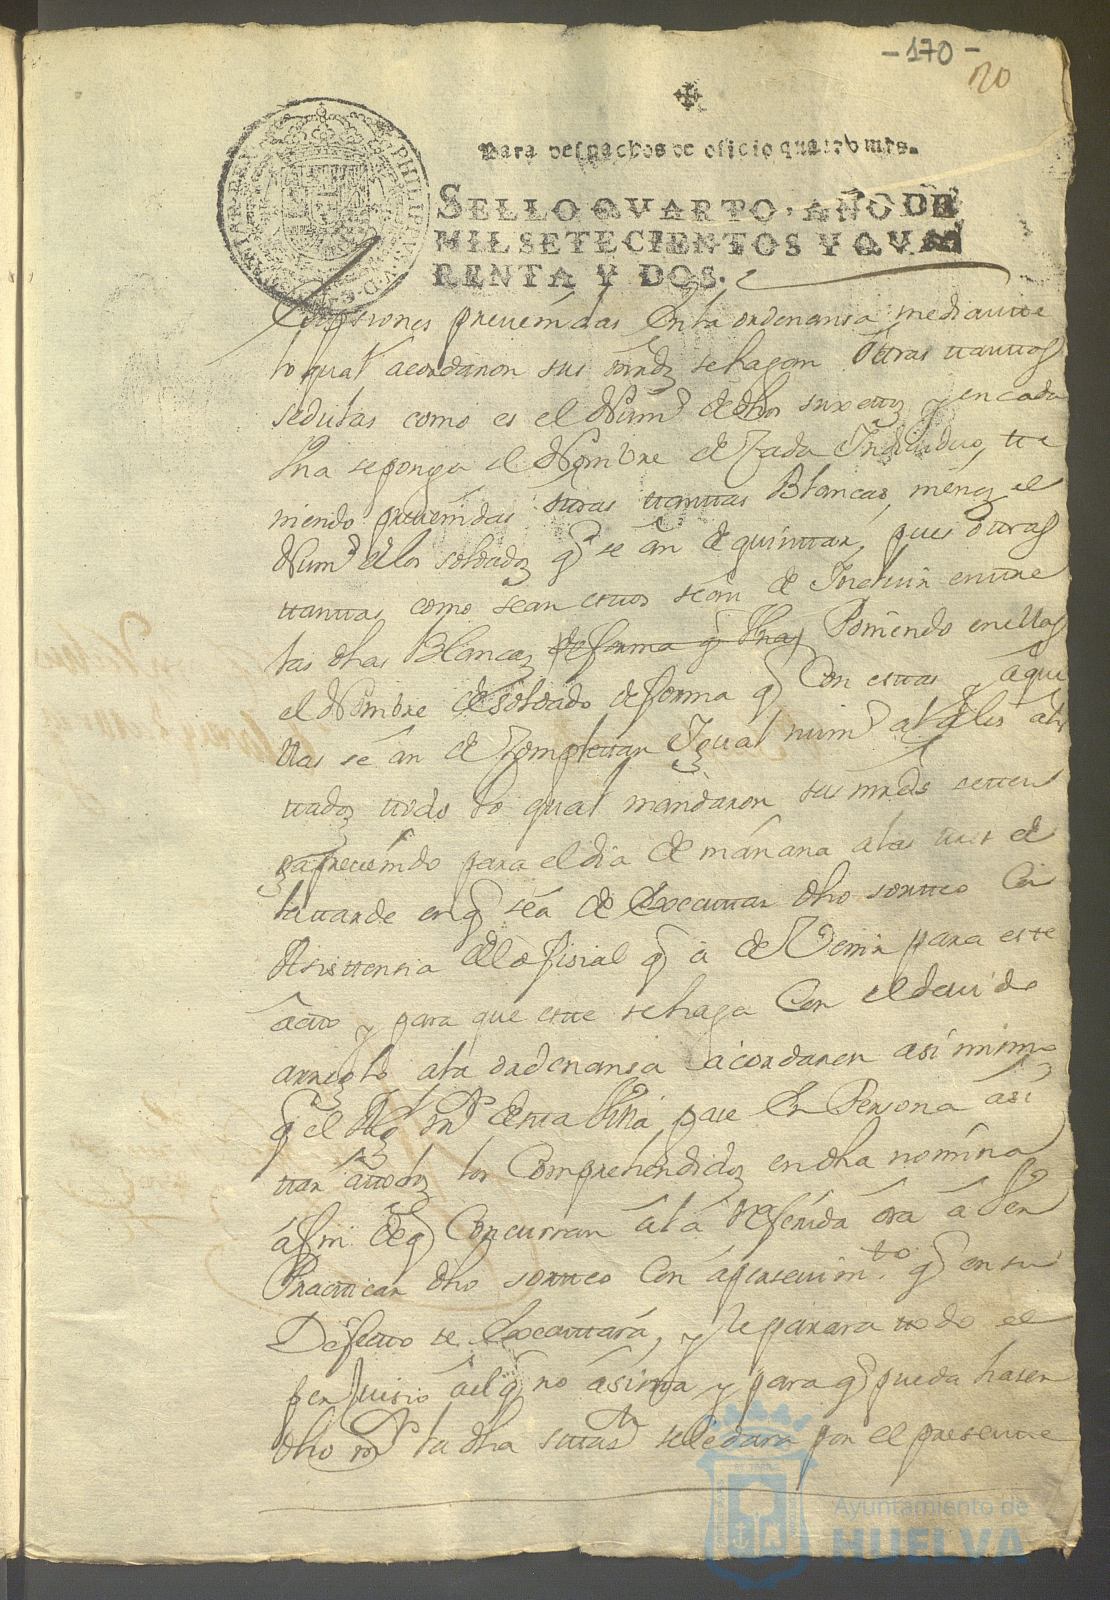 -170-
20
Para despachos de oficio quatro mrs.
SELLO QVARTO, AÑO DE
MIL SETECIENTOS Y QVA
RENTA Y DOS.
preuenidas en la ordenansa mediante
lo qual acordaron sus mrds se hagan otras tanttas
sedulas como es el Num.o de dhos suxettos y en cada
Vna se ponga el Nombre de Cada Indibiduo, te
niendo preuenidas otras tanttas Blancas menos el
Num.o de los soldados q se an de quinttar, pues otras
tanttas como sean esttos se an de Incluir enttre
las dhas Blancas de forma q Vnas Poniendo en ellas
el Nombre de soldado de forma q Con esttas y aque
llas se an de Complettar Igual num.o al de los alis
ttados ttodo lo qual mandaron sus mrds se tten
ga preuenido para el dia de mañana a las tres de
la ttarde en q se a de Executtar dho sortteo Con
Asisttensia del ofisial q a de Venir para este
actto y para que estte se haga Con el deuido
arreglo a la ordenansa acordaron asi mismo
q el Alg.l m.r de estta Villa pase En Persona a si
ttar a ttodos los Comprehendidos en dha nomina
a fin de q Concurran a la Referida ora a Ver
Practticar dho sortteo Con apersevim.to q en su
Defectto se Executtará, y le parara ttodo el
perjuisio a el q no asistta y para q pueda haser
dho m.r la dha sittas.n se le dara por el presentte
Ayuntamiento de
HUELVA